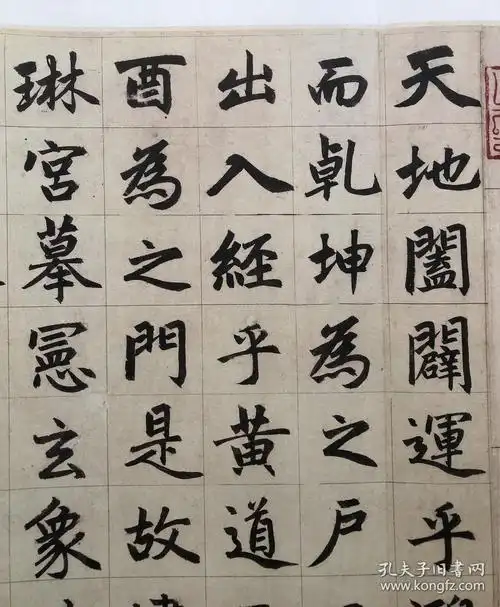 天地闔闢運乎
而乹坤為之戶
出入經乎黃道
酉為之門是故
琳宮摹憲玄象
孔夫子旧书网
www.kongfz.com